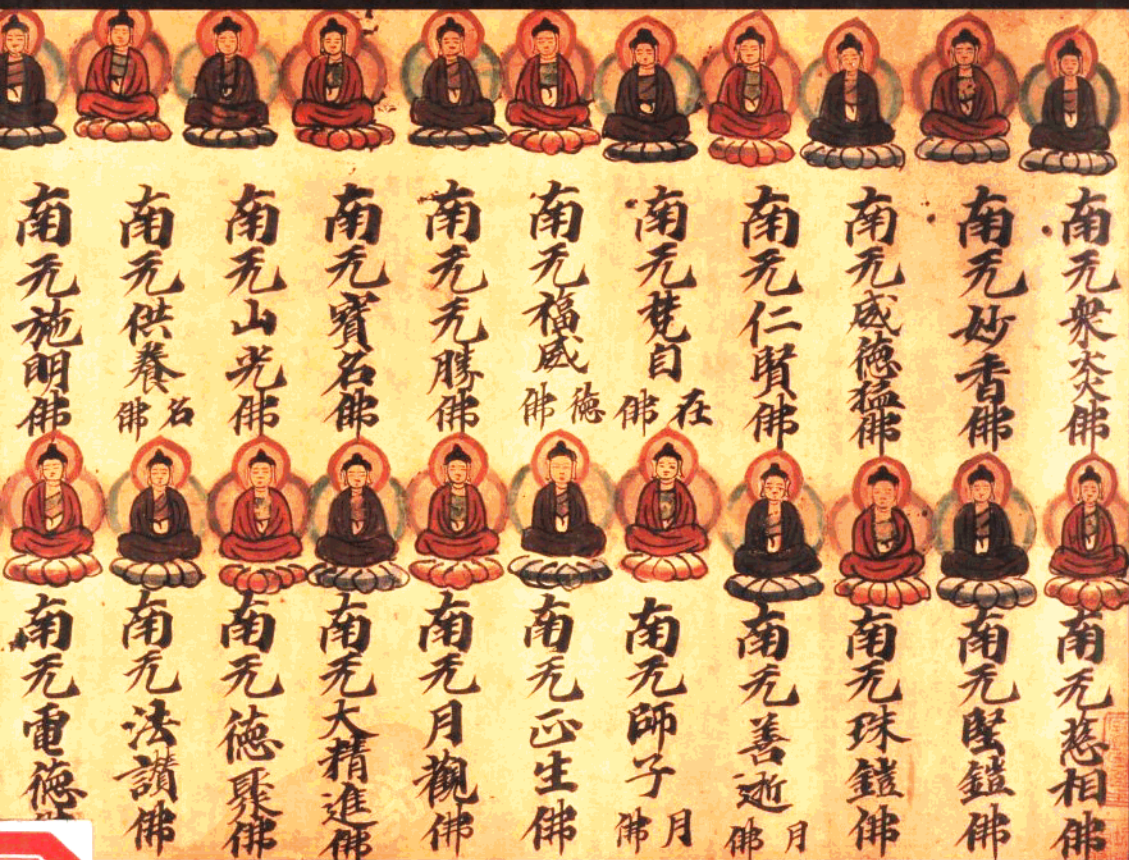 南无衆炎佛
南无妙香佛
南无威徳猛佛
南无仁賢佛
南无梵自在佛
南无福威徳佛
南无无勝佛
南无寳名佛
南无山光佛
南无供養名佛
南无施明佛
南无慈相佛
南无堅鎧佛
南无珠鎧佛
南无善逝月佛
南无師子月佛
南无正生佛
南无月觀佛
南无大精進佛
南无徳聚佛
南无法讃佛
南无電徳